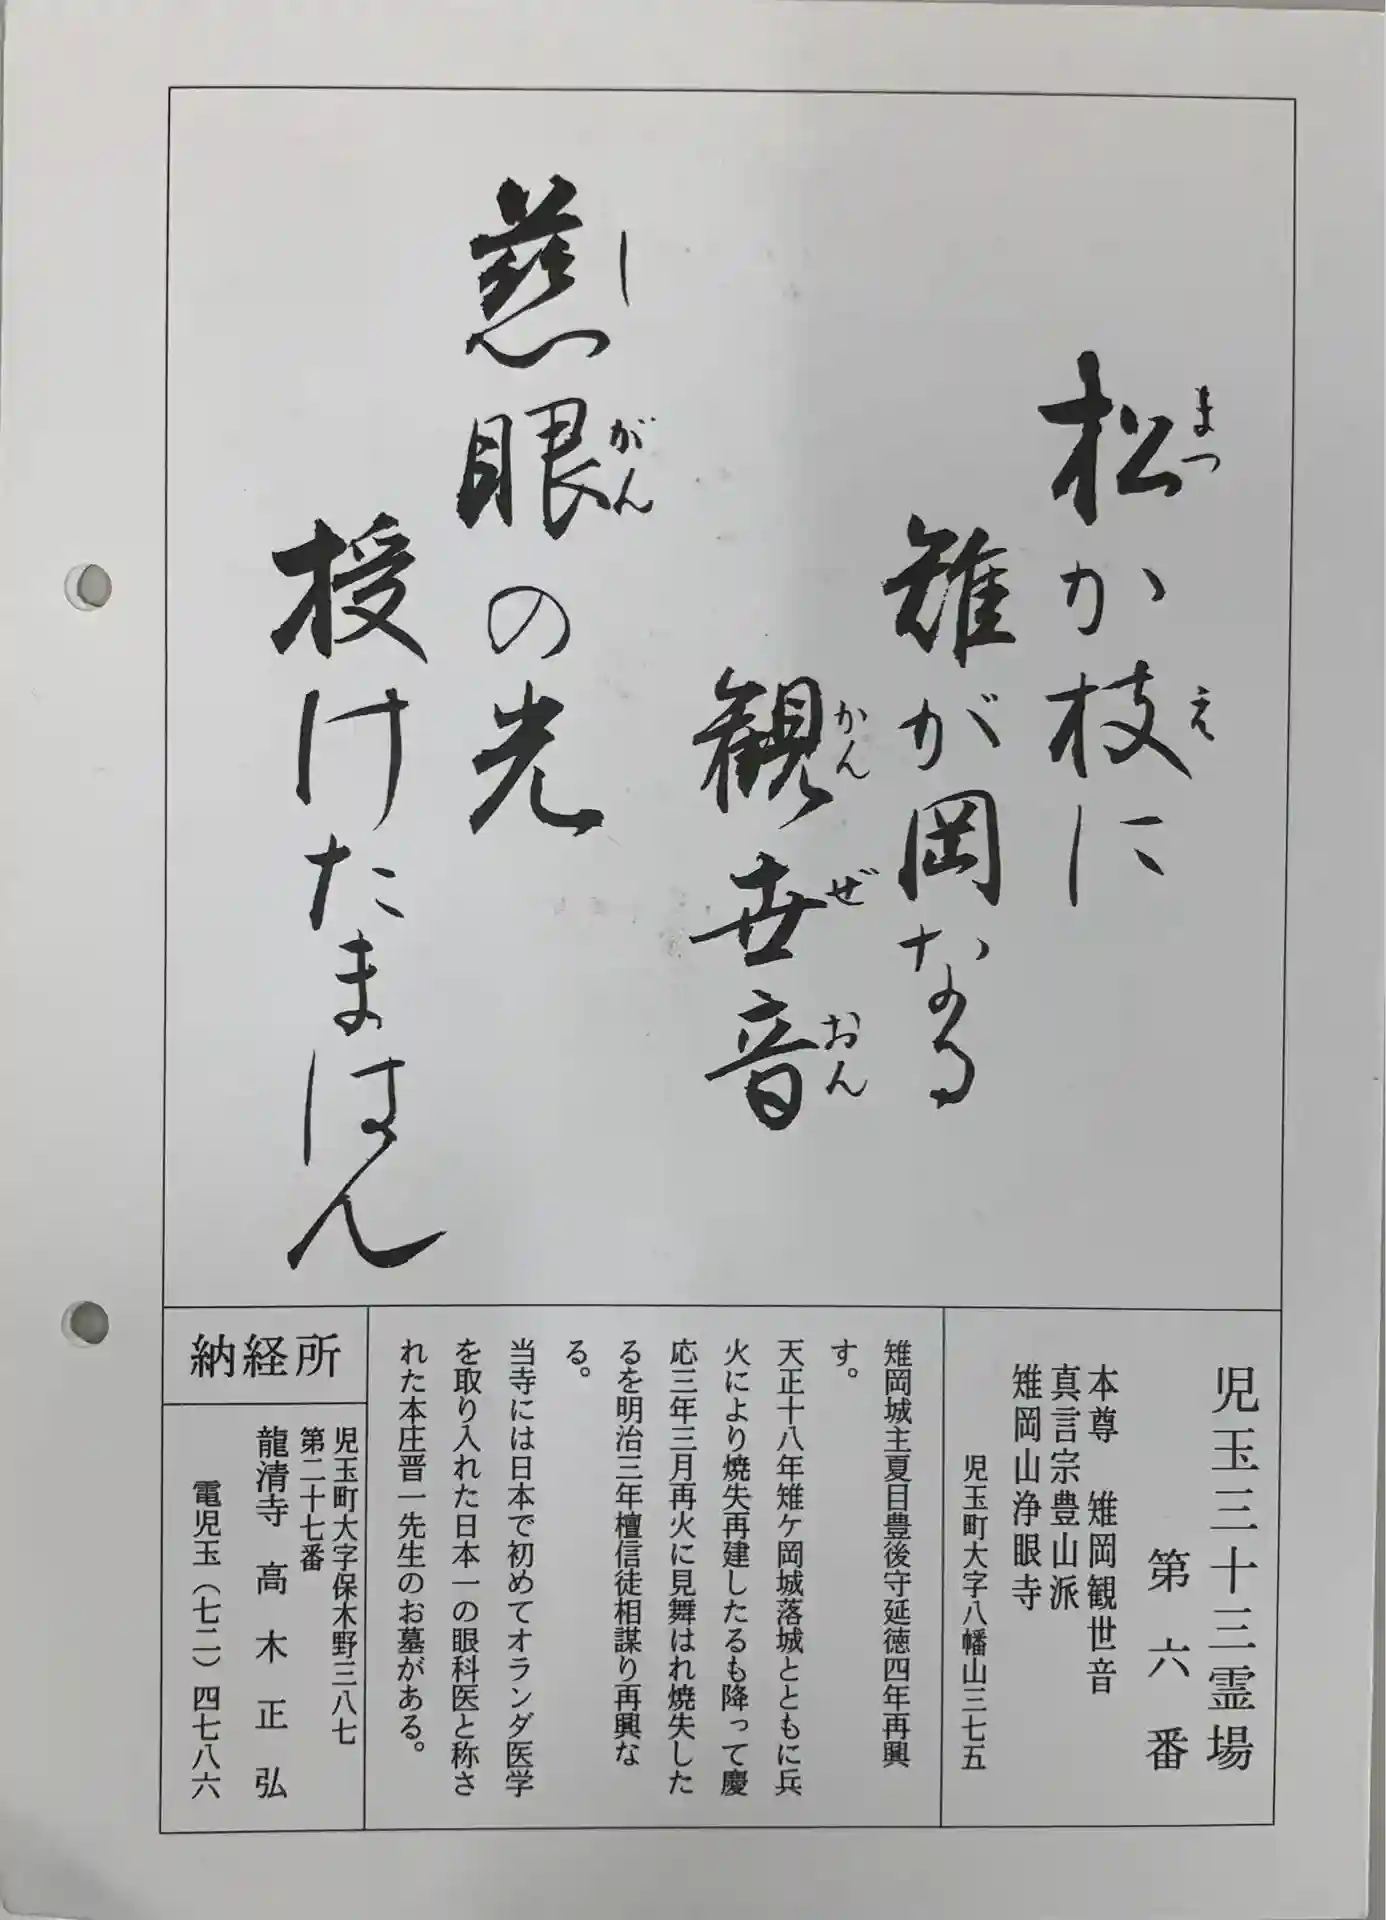 松か枝に
まつ
え
雉が岡なる
観世音
かん
ぜ
おん
慈眼の光
し
がん
授けたまはん
児玉三十三霊場
第六番
本尊 雉岡観世音
真言宗豊山派
雉岡山浄眼寺
児玉町大字八幡山三七五
雉岡城主夏目豊後守延徳四年再興
す。
天正十八年雉ケ岡城落城とともに兵
火により焼失再建したるも降って慶
応三年三月再火に見舞はれ焼失した
るを明治三年檀信徒相謀り再興な
る。
当寺には日本で初めてオランダ医学
を取り入れた日本一の眼科医と称さ
れた本庄晋一先生のお墓がある。
納経所
児玉町大字保木野三八七
第二十七番
龍清寺 高木正弘
電児玉(七二)四七八六